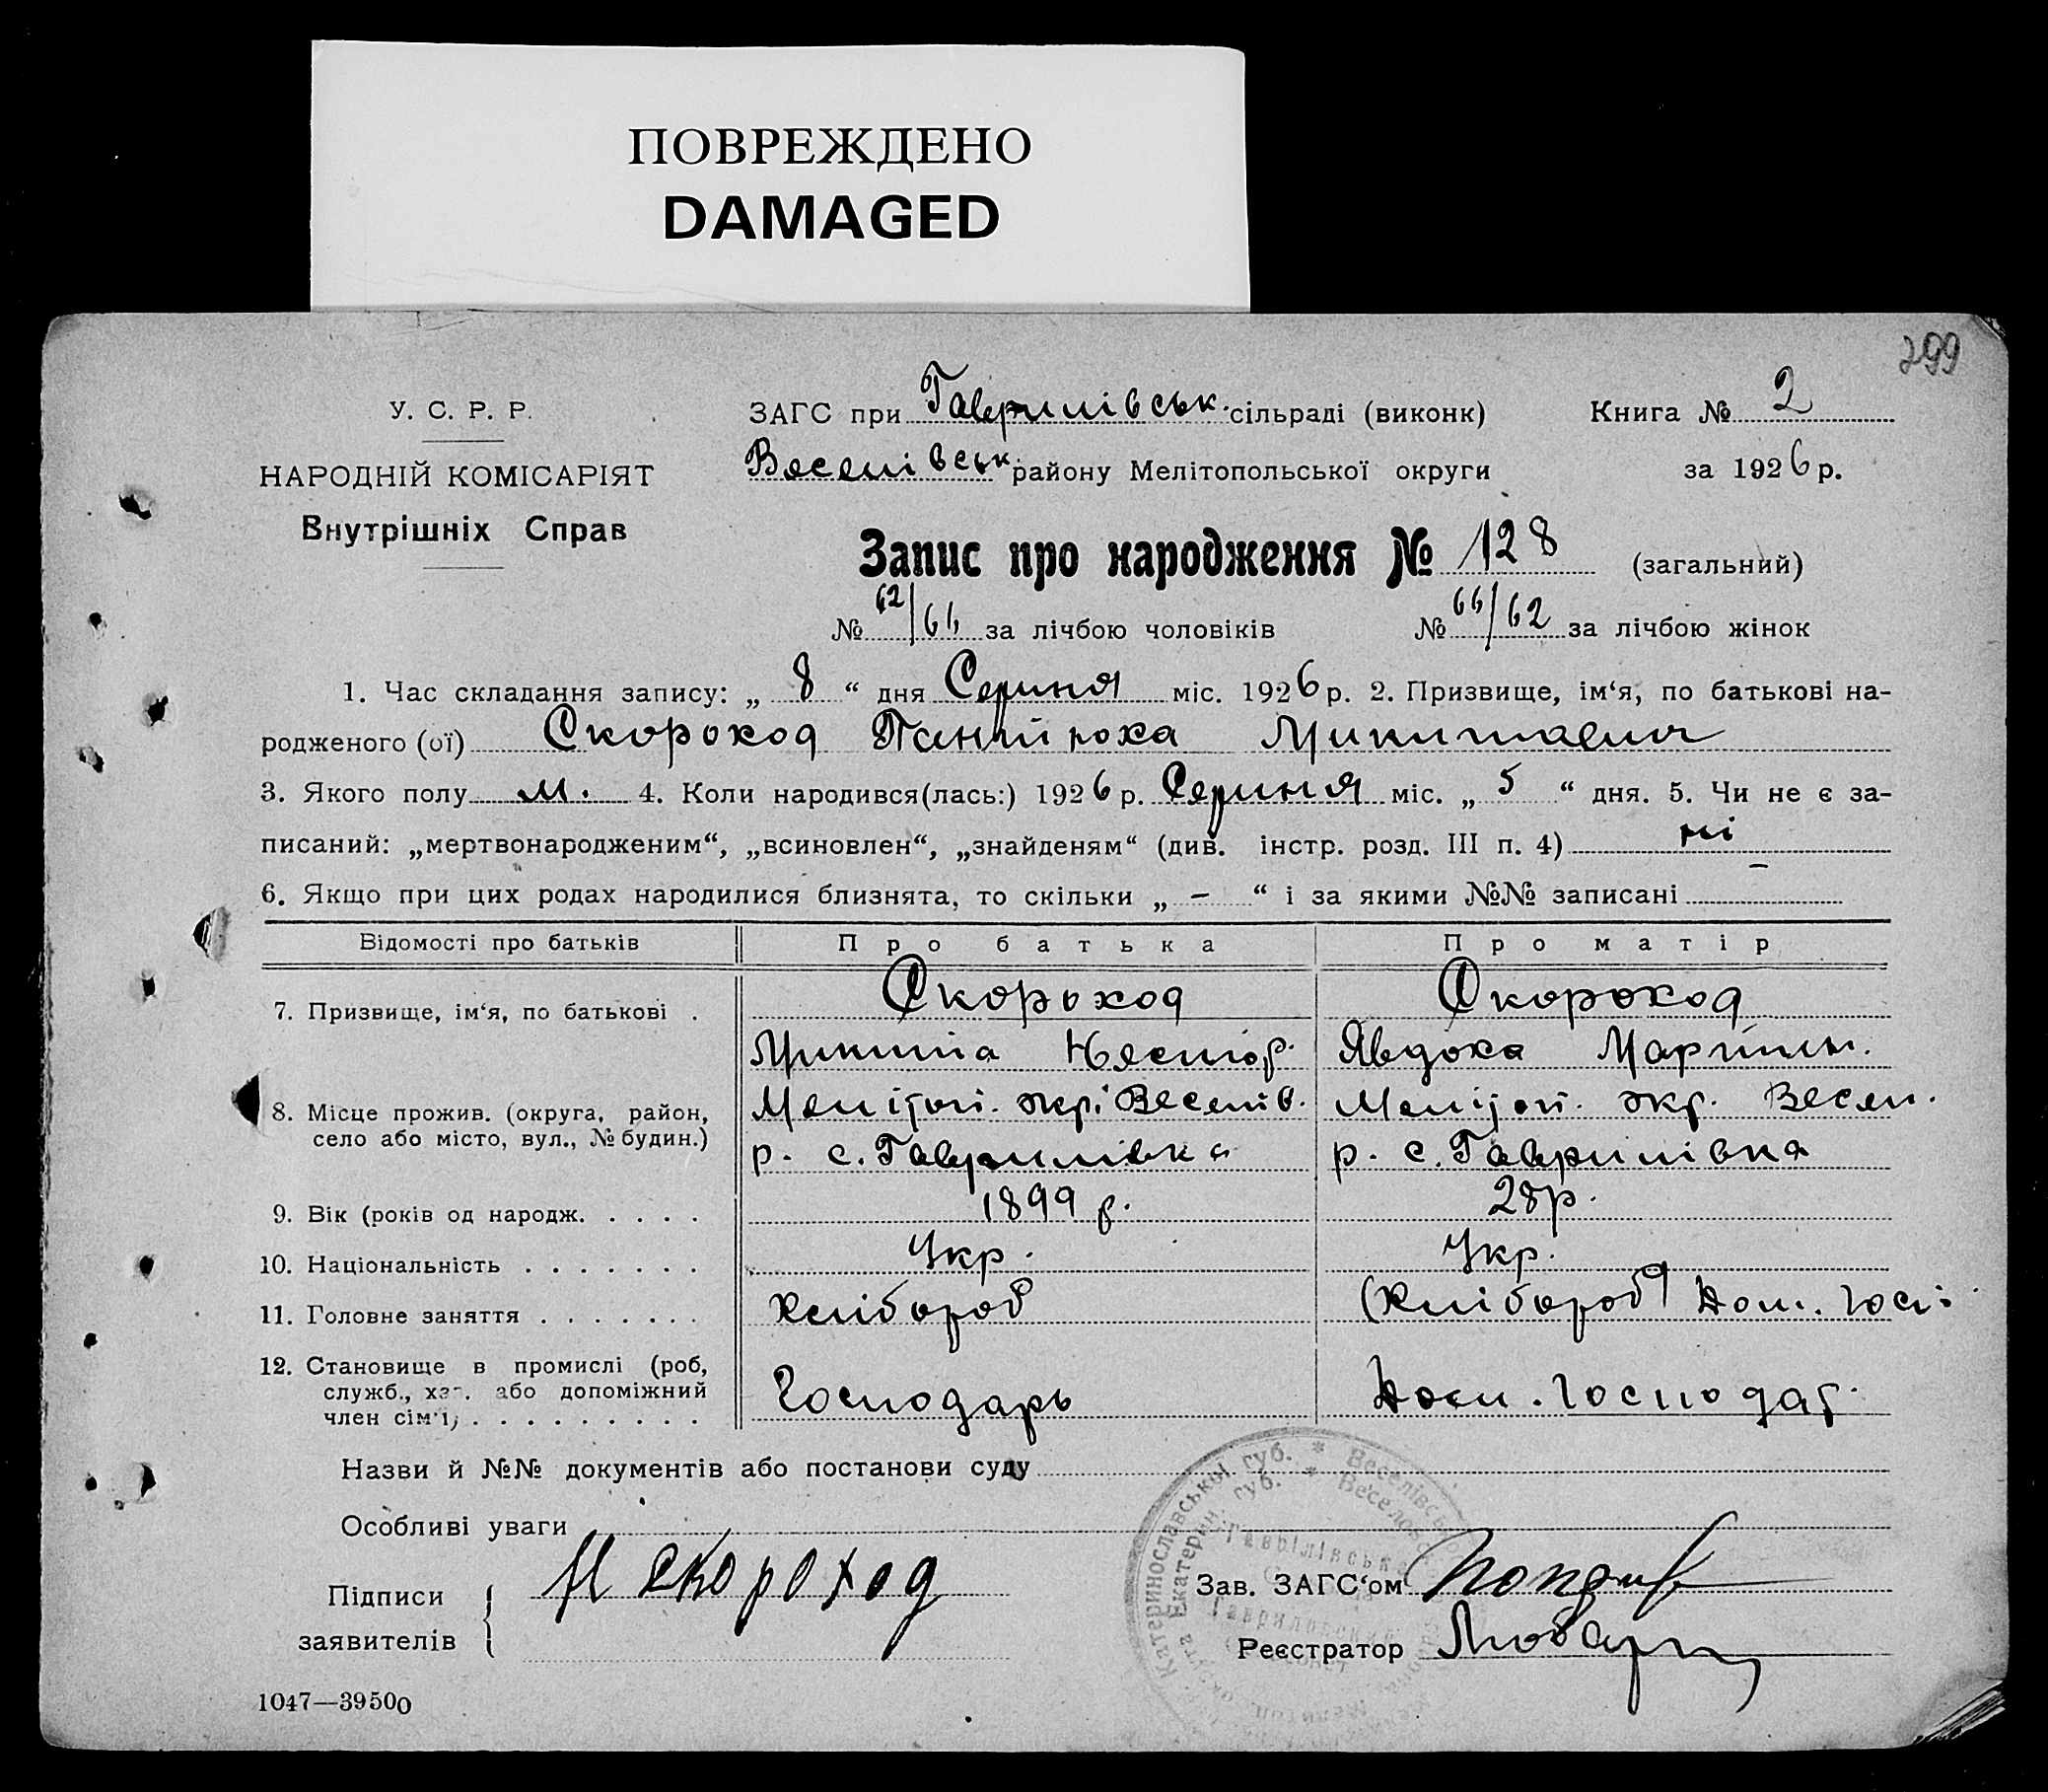 ПОВРЕЖДЕНО
DAMAGED
299
У. С. Р. Р.
НАРОДНІЙ КОМІСАРІЯТ
Внутрішніх Справ
ЗАГС при Гаврилівськ. сільраді (виконк)
Книга № 2
Веселівськ. району Мелітопольської округи
за 1926 р.
Запис про народження № 128 (загальний)
№ 62/66 за лічбою чоловіків № 66/62 за лічбою жінок
1. Час складання запису: „ 8 “ дня Серпня міс. 1926 р. 2. Призвище, ім‘я, по батькові на-
родженого (ої) Скороход Микитаевич
3. Якого полу м. 4. Коли народився(лась:) 1926 р. Серпня міс. „ 5 “ дня. 5. Чи не є за-
писаний: „мертвонародженим“, „всиновлен“, „знайденям“ (див. інстр. розд. III п. 4) ні
6. Якщо при цих родах народилися близнята, то скільки „ – “ і за якими №№ записані –
Відомості про батьків Про батька Про матір
7. Призвище, ім‘я, по батькові . Скороход Скороход
Микита Нестор. Явдоха Мартин.
8. Місце прожив. (округа, район, Мелітоп. окр. Веселів. Мелітоп. окр. Весел.
село або місто, вул., № будин.) р. с. Гаврилівка р. с. Гаврилівка
9. Вік (років од народж. . . . . 1899 р. 28 р.
10. Національність . . . . . . . Укр. Укр.
11. Головне заняття . . . . . . . Хлібороб (Хлібороб) Дом. госп.
12. Становище в промислі (роб,
служб., хаз. або допоміжний Господарь Дом. господар.
член сім‘ї) . . . . . . . . .
Назви й №№ документів або постанови суду
Особливі уваги
Підписи Скороход
заявителів
Зав. ЗАГС‘ом
Реєстратор
Катеринославської губ. * Веселівськ
Екатерин. губ. * Веселовск
Гаврілівська
Гавриловский
1047—39500